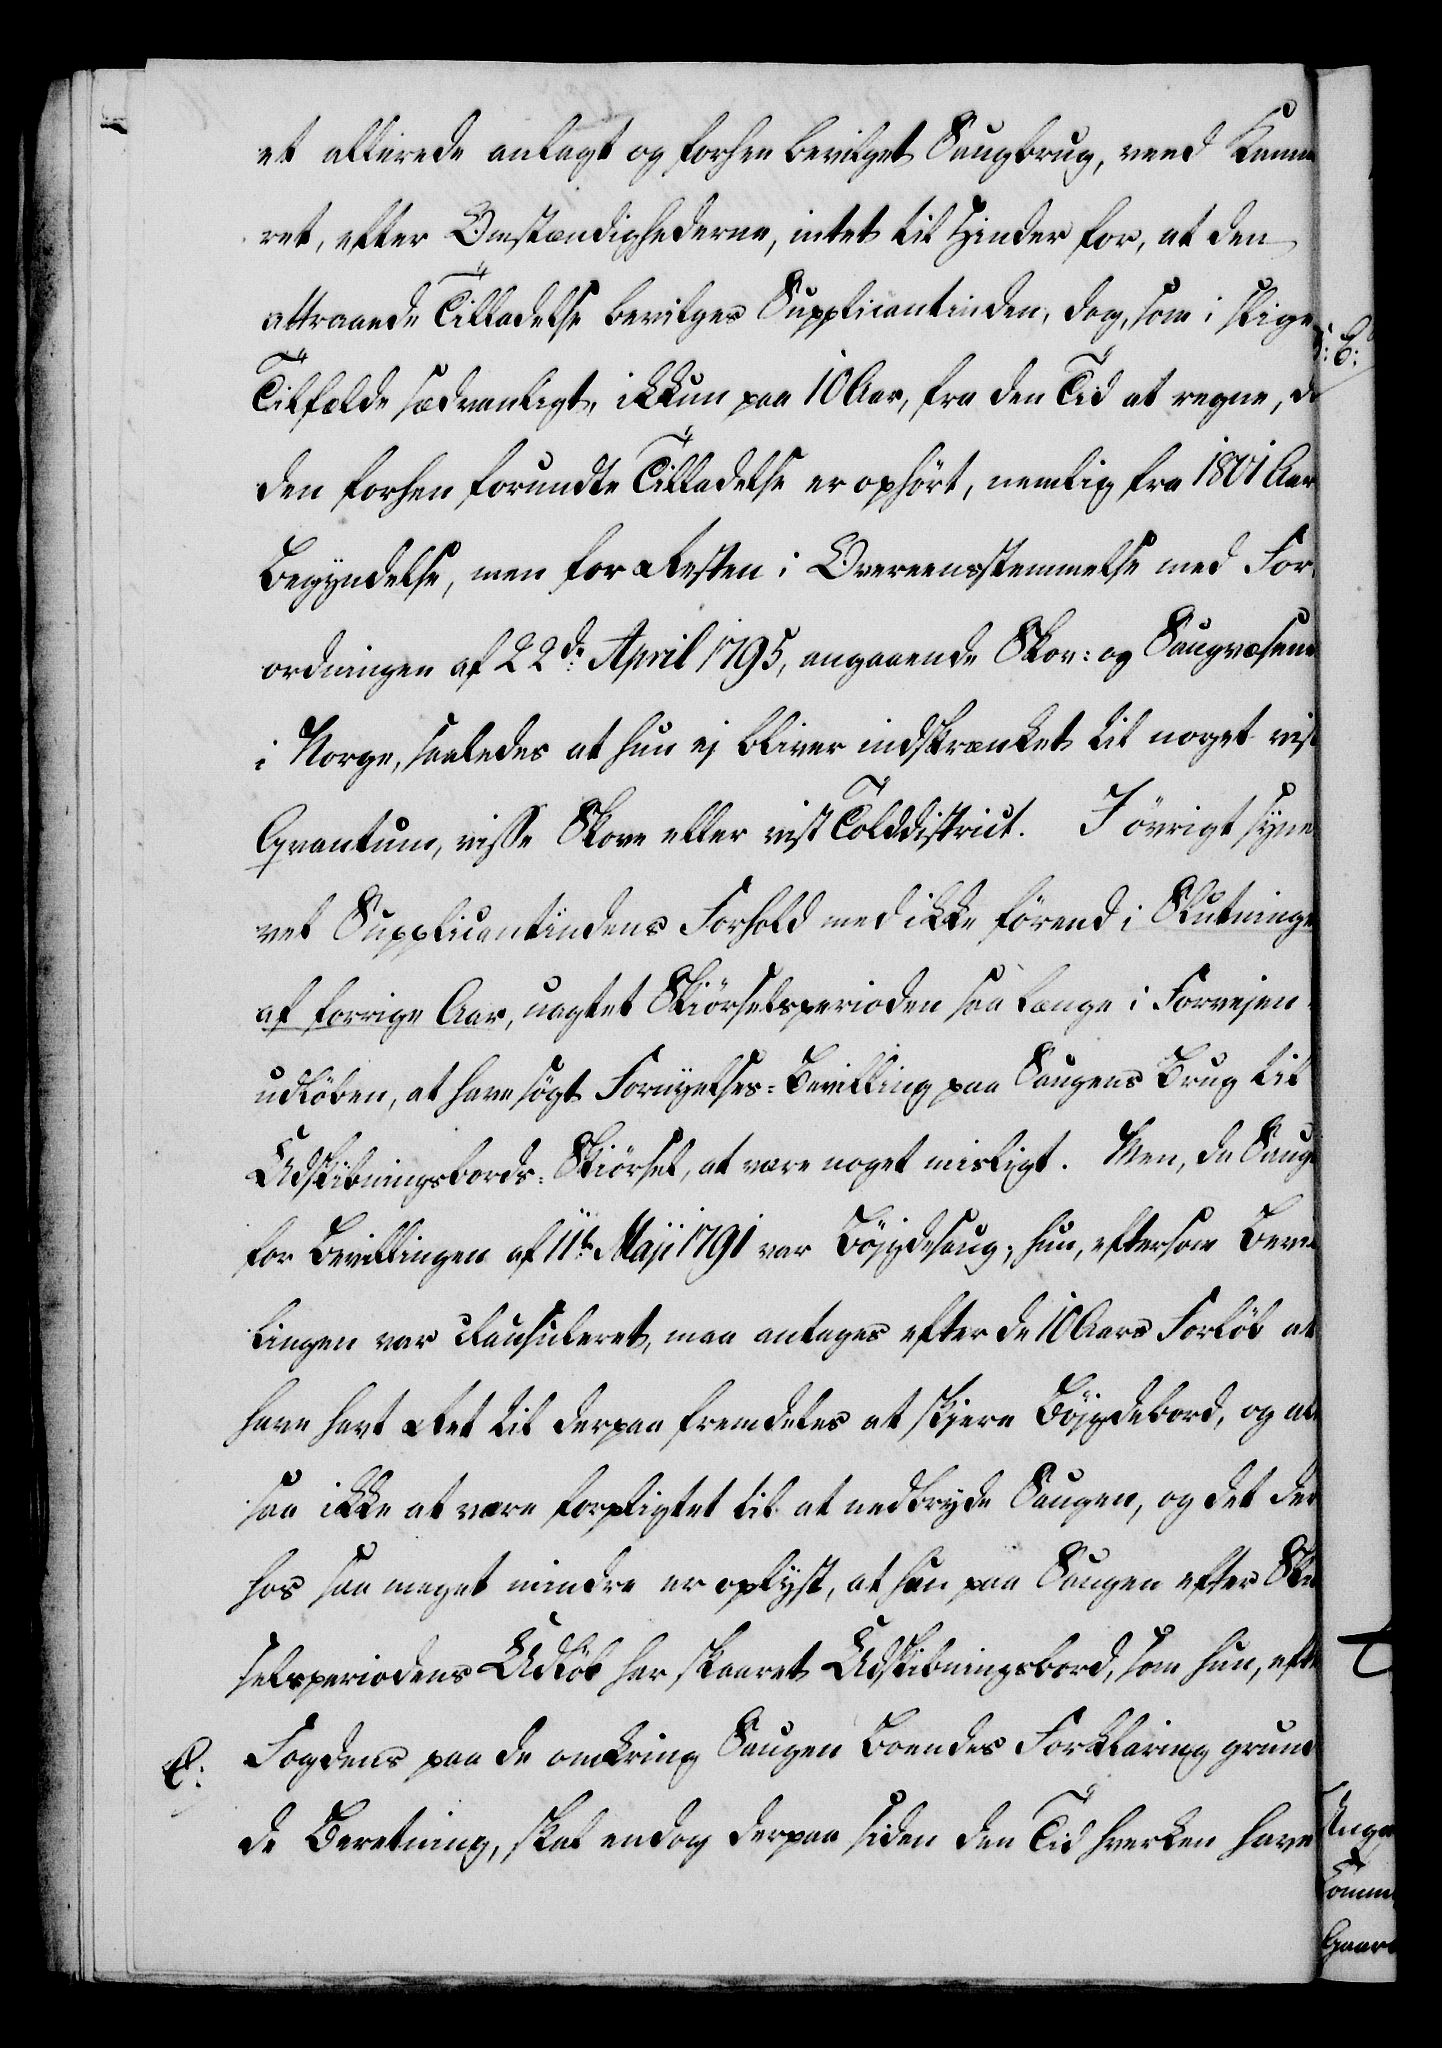 et allerede anlagt og forhen bevilget Saugbrug, veed Kamme
ret, efter Omstændighederne, intet til Hinder for, at den
attraaede Tilladelse bevilges Supplicantinden, dog, som i slige
Tilfælde sædvanligt, ikkun paa 10 Aar, fra den Tid at regne, da
den forhen forundte Tilladelse er ophört, nemlig fra 1801 Aars
Begyndelse, men for Resten i Overeensstemmelse med For¬
ordningen af 22de April 1795, angaaende Skov= og Saugvæsenet
i Norge, saaledes at hun ej bliver indskrænket til noget vist
Qvantum, visse Skove eller vist Tolddistrict. I övrigt syne
vel Supplicantindens Forhold med ikke förend i Slutningen
af forrige Aar, uagtet Skiörselsperioden saa længe i Forvejen
udlöben, at have sögt Fornyelses=Bevilling paa Saugens Brug til
Udskibningsbords=Skiörsel, at være noget misligt. Men, da Saugen
for Bevillingen af 11te Maji 1791 var Böjgdesaug, hun, eftersom Bevil
lingen var clausuleret, maa antages efter de 10 Aars Forlöb at
have havt Ret til derpaa fremdeles at skjere Böjgdebord, og alt
saa ikke at være forpligtet til at nedbryde Saugen, og det der
hos saa meget mindre er oplyst, at hun paa Saugen efter Skiör
selsperiodens Udlöb har skaaret Udskibningsbord, som hun, efter
Fogdens paa de omkring Saugen Boendes Forklaring grunde
de Beretning, skal endog derpaa siden den Tid hverken have